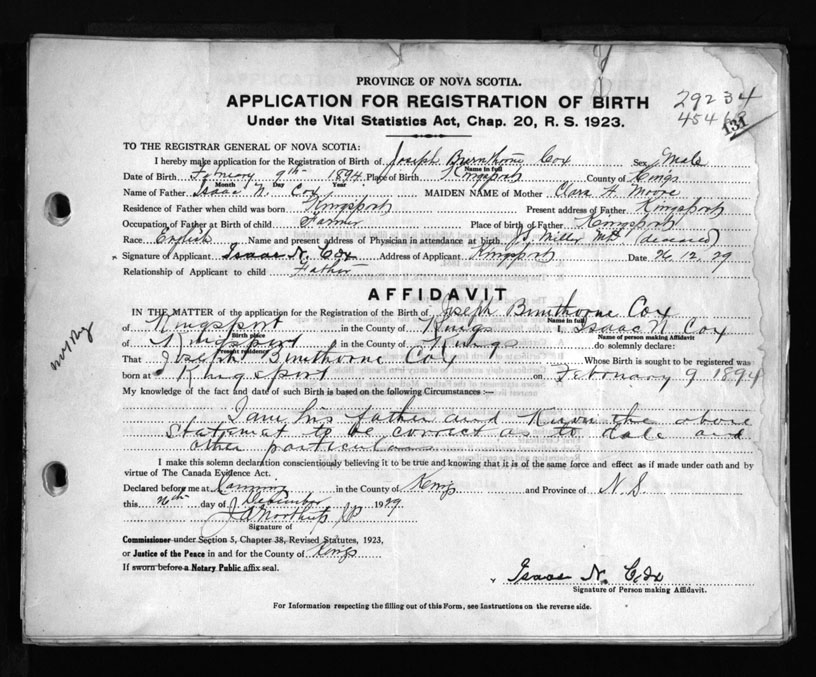 PROVINCE OF NOVA SCOTIA.
APPLICATION FOR REGISTRATION OF BIRTH
29234
Under the Vital Statistics Act, Chap. 20, R. S. 1923.
131
TO THE REGISTRAR GENERAL OF NOVA SCOTIA:
I hereby make application for the Registration of Birth of Joseph Burnthorne Cox Sex Male
Name in full
Date of Birth 9th 1894 Place of Birth Kingsport County of Kings
Month Day Year
Name of Father Isaac N. Cox MAIDEN NAME of Mother Clara A Moore
Residence of Father when child was born Kingsport Present address of Father Kingsport
Occupation of Father at Birth of child Farmer Place of birth of Father Kingsport
Race English Name and present address of Physician in attendance at birth Miller MD (deceased)
Signature of Applicant Isaac N. Cox Address of Applicant Kingsport Date 26.12.29
Relationship of Applicant to child Father
AFFIDAVIT
IN THE MATTER of the application for the Registration of the Birth of Joseph Burnthorne Cox
Name in full
of Kingsport in the County of Kings I, Isaac N Cox
Birth place Name of person making Affidavit
of Kingsport in the County of Kings do solemnly declare:
Present residence
That Joseph Burnthorne Cox Whose Birth is sought to be registered was
born at Kingsport on February 9 1894
My knowledge of the fact and date of such Birth is based on the following Circumstances :—
I am his father and Know the above
statement to be correct as to date and
other particulars
I make this solemn declaration conscientiously believing it to be true and knowing that it is of the same force and effect as if made under oath and by
virtue of The Canada Evidence Act.
Declared before me at Canning in the County of Kings and Province of N.S.
this 26th day of December 1929
J A Northup JP
Signature of
Commissioner under Section 5, Chapter 38, Revised Statutes, 1923,
or Justice of the Peace in and for the County of Kings
If sworn before a Notary Public affix seal.
Isaac N. Cox
Signature of Person making Affidavit.
For Information respecting the filling out of this Form, see Instructions on the reverse side.